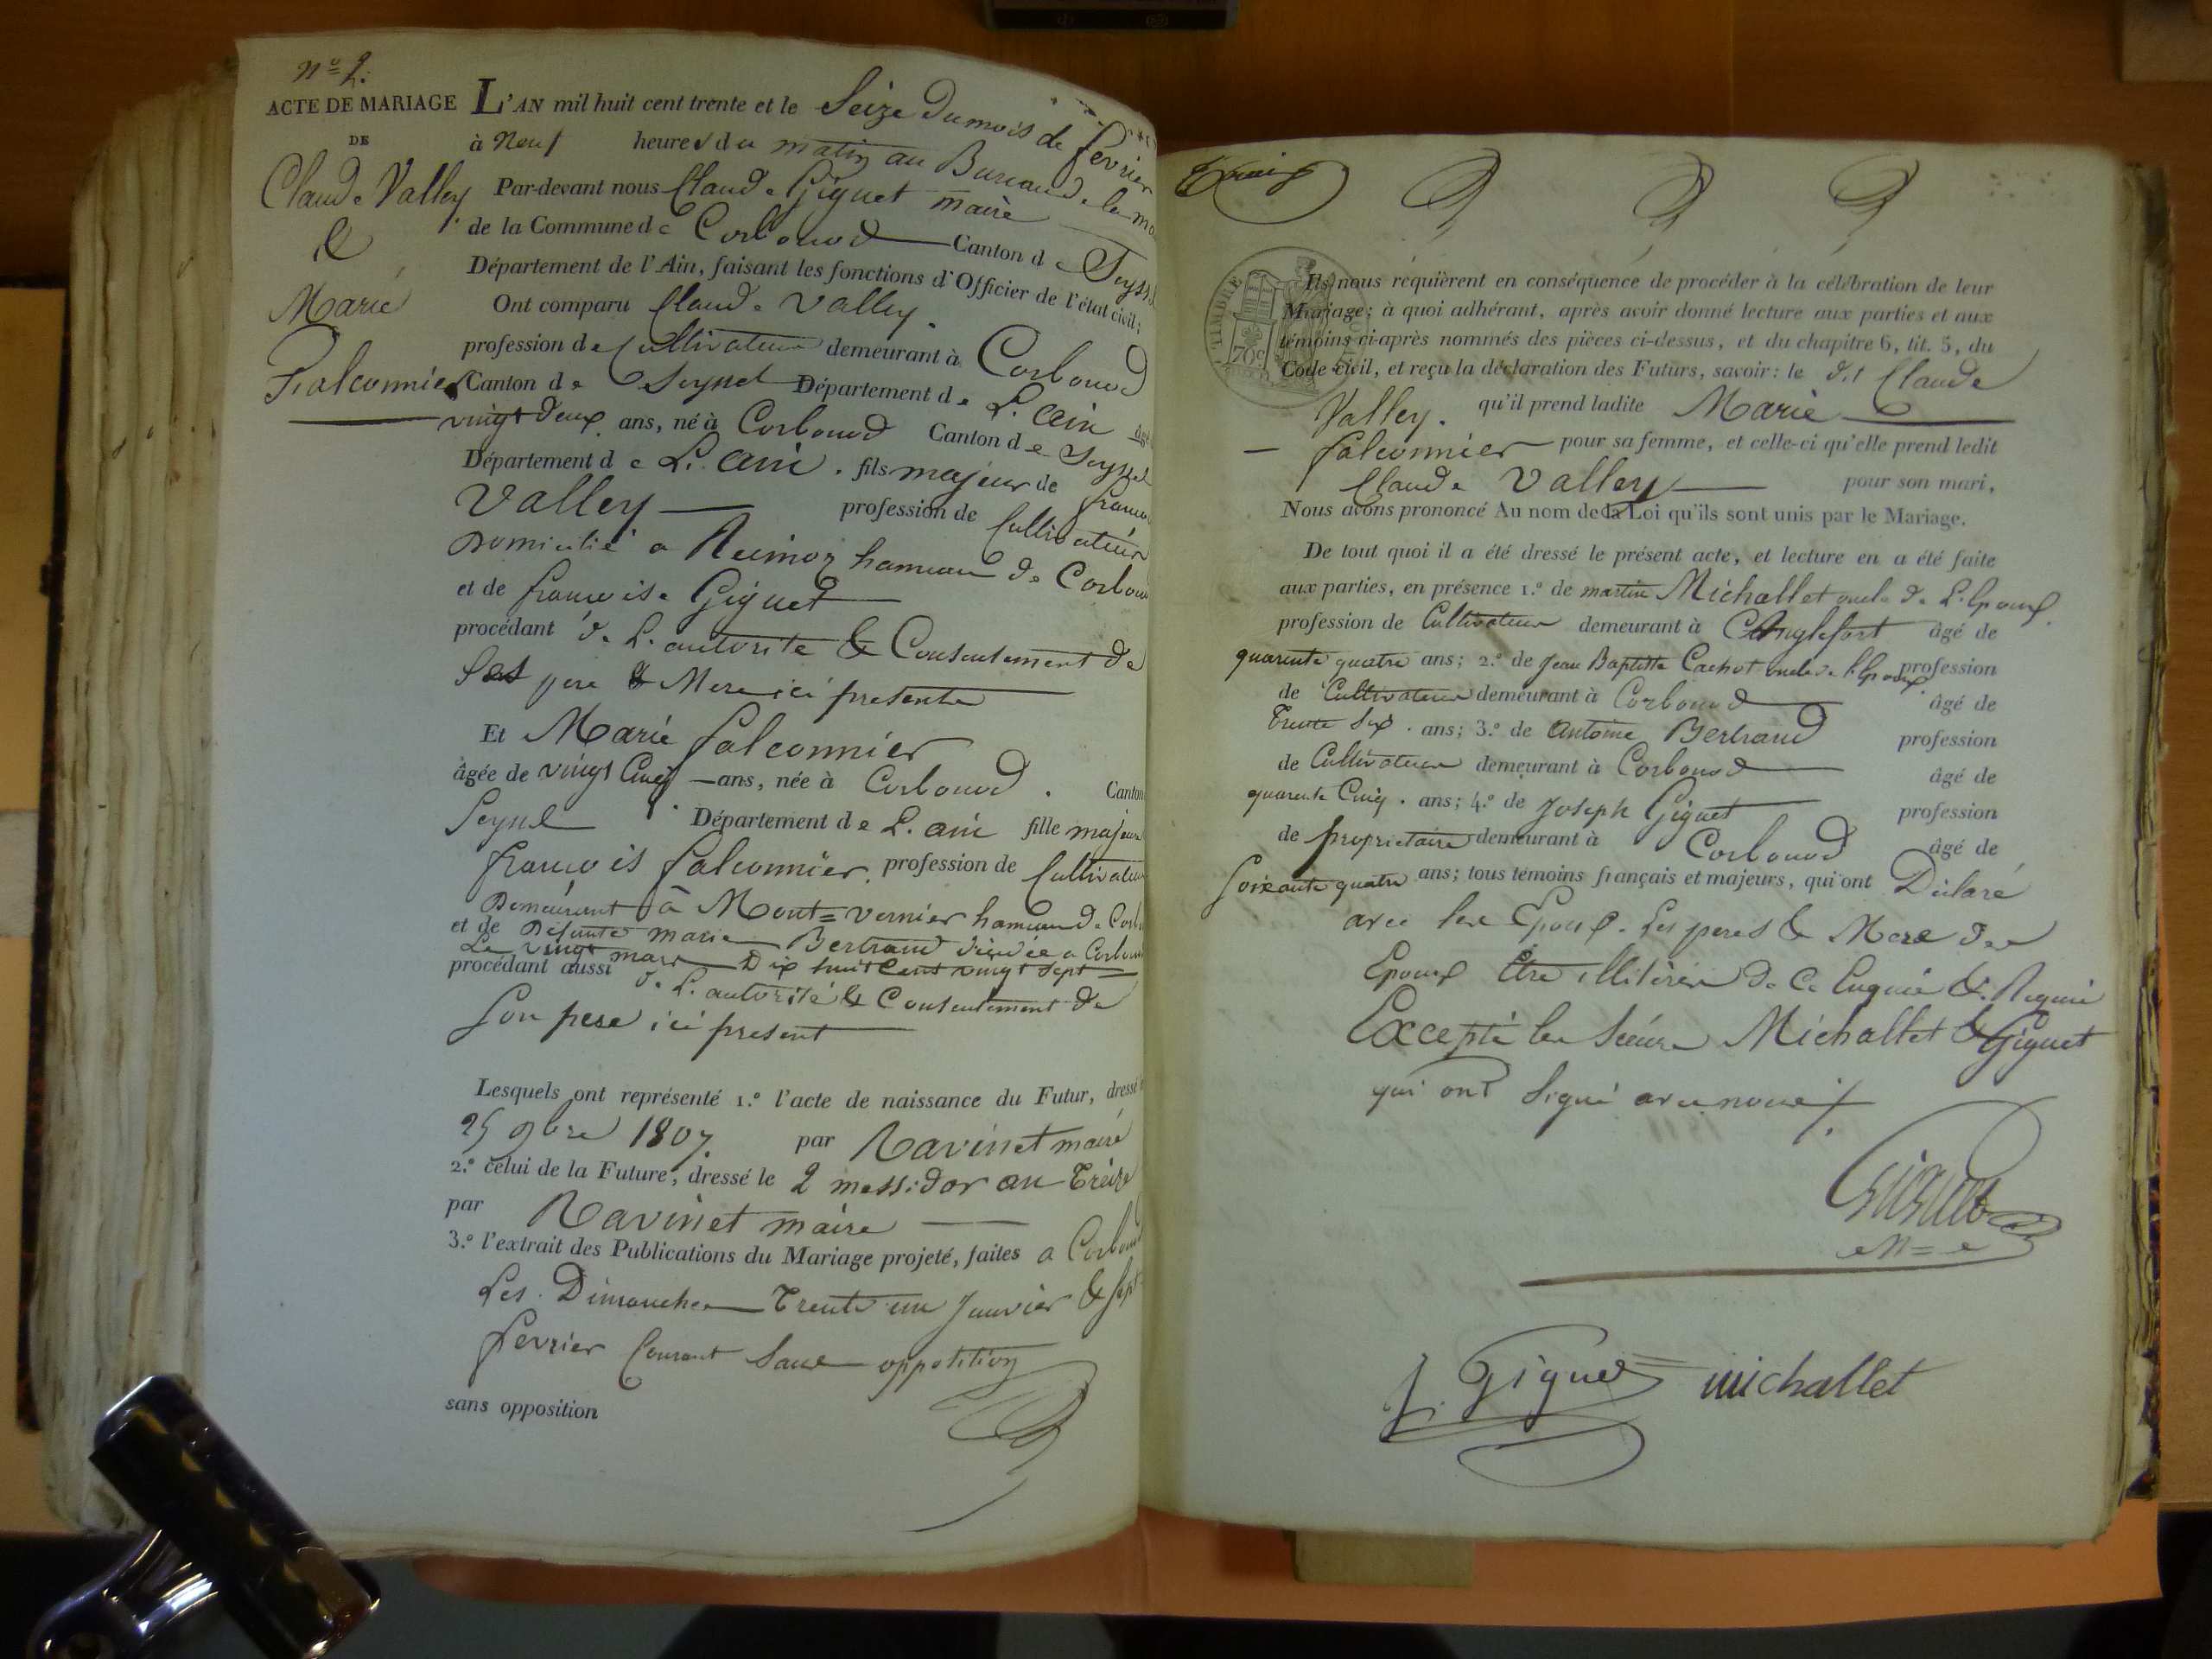 N.° 2.
ACTE DE MARIAGE
DE
Claude Valley
&
Marie
Falconnier
L'AN mil huit cent trente et le Seize du mois de fevrier
à Neuf heures du matin au Bureau de la
Par-devant nous Claude Giguet maire
de la Commune de Corbonod Canton de Seyssel
Département de l'Ain, faisant les fonctions d'Officier de l'état civil;
Ont comparu Claude Valley.
profession de Cultivateur demeurant à Corbonod
Canton de Seyssel Département de L'ain âgé
vingt deux ans, né à Corbonod Canton de Seyssel
Département de L'ain. fils majeur de
Valley profession de Cultivateur
Domicilié a hameau de Corbonod
et de francoise Giguet
procédant de L'autorité & Consentement de
Ses pere & Mere ici presents
Et Marie falconnier
âgée de vingt Cinq ans, née à Corbonod. Canton
Seyssel Département de L'ain fille majeure
francois falconnier. profession de Cultivateur
Demeurant à Mont=vernier hameau de
et de Defunte marie Bertrand décédée a Corbonod
Le vingt mars Dix huit Cent vingt sept
procédant aussi de L'autorité & Consentement de
Son pere ici present
Lesquels ont représenté 1.° l'acte de naissance du Futur, dressé
25 9bre 1807. par Ravinet maire
2.° celui de la Future, dressé le 2 messidor an treize
par Ravinet maire
3.° l'extrait des Publications du Mariage projeté, faites a Corbonod
Les Dimanches Trente un Janvier & Sept
fevrier Courant Sans opposition
sans opposition
TIMBRE
70c
Ils nous requièrent en conséquence de procéder à la célébration de leur
Mariage; à quoi adhérant, après avoir donné lecture aux parties et aux
témoins ci-après nommés des pièces ci-dessus, et du chapitre 6, tit. 5, du
Code civil, et reçu la déclaration des Futurs, savoir: le dit Claude
Valley. qu'il prend ladite Marie
falconnier pour sa femme, et celle-ci qu'elle prend ledit
Claude Valley pour son mari,
Nous avons prononcé Au nom de la Loi qu'ils sont unis par le Mariage.
De tout quoi il a été dressé le présent acte, et lecture en a été faite
aux parties, en présence 1.° de martin Michallet oncle de L'Epoux.
profession de Cultivateur demeurant à Anglefort âgé de
quarente quatre ans; 2.° de Jean Baptiste Cachot oncle de l'Epoux. profession
de Cultivateur demeurant à Corbonod âgé de
Trente Six. ans; 3.° de Antoine Bertrand profession
de Cultivateur demeurant à Corbonod âgé de
quarente Cinq. ans; 4.° de Joseph Giguet profession
de proprietaire demeurant à Corbonod âgé de
Soixante quatre ans; tous témoins français et majeurs, qui ont Déclaré
avec les Epoux. Les peres & Mere des
Epoux Etre illitérés De Ce Enquis & Requis
Excepté les Sieurs Michallet & Giguet
qui ont Signé avec nous
Giguet
J. Giguet michallet